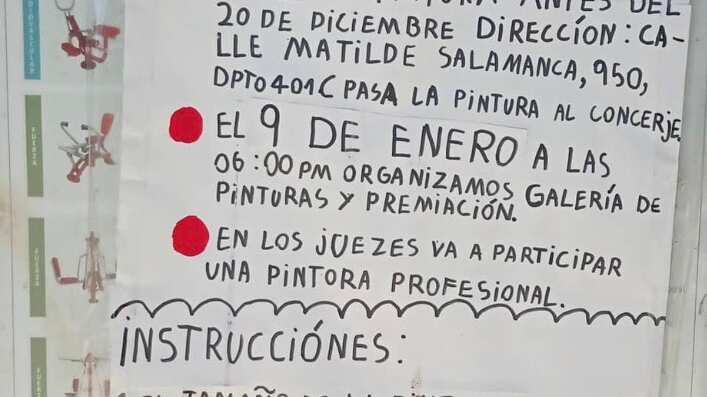 ANTES DEL
20 DE DICIEMBRE DIRECCÍON: CA-
LLE MATILDE SALAMANCA, 950,
DPTO 401C PASA LA PINTURA AL CONCERJE.
EL 9 DE ENERO A LAS
06:00PM ORGANIZAMOS GALERÍA DE
PINTURAS Y PREMIACIÓN.
EN LOS JUEZES VA A PARTICIPAR
UNA PINTORA PROFESIONAL.
INSTRUCCIÓNES:
FUERZA
FUERZA
FUERZA